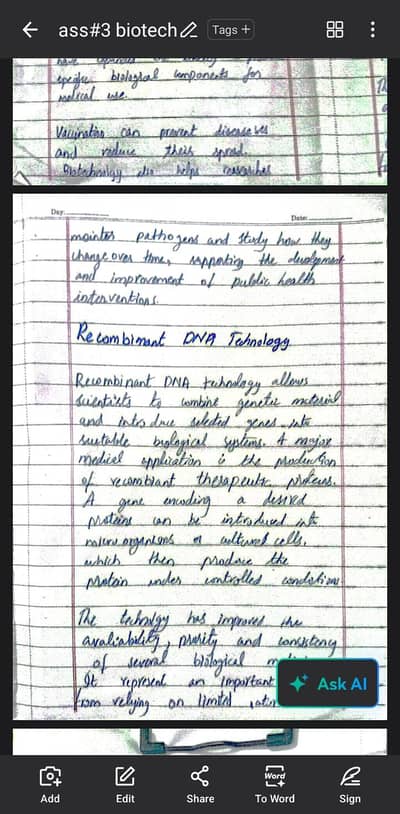 ass#3 biotech
Tags +
specific biological components for
medical use.
Vaccination can prevent diseases
and reduce their spread.
Biotechnology also helps researches
Day:
Date:
pathogens and study how they
change over time, supporting the development
and improvement of public health
interventions.
Recombinant DNA Technology
Recombinant DNA technology allows
scientists to combine genetic material
and introduce selected genes into
suitable biological systems. A major
medical application is the production
of recombiant therapeutic proteins.
A gene encoding a desired
proteins can be introduced into
or cultured cells,
which then produce the
protein under controlled conditions
The technolgy has improved the
availability, purity and consistency
of several biological
It represent an important
from relying on limited
Ask AI
Add
Edit
Share
Word
To Word
Sign